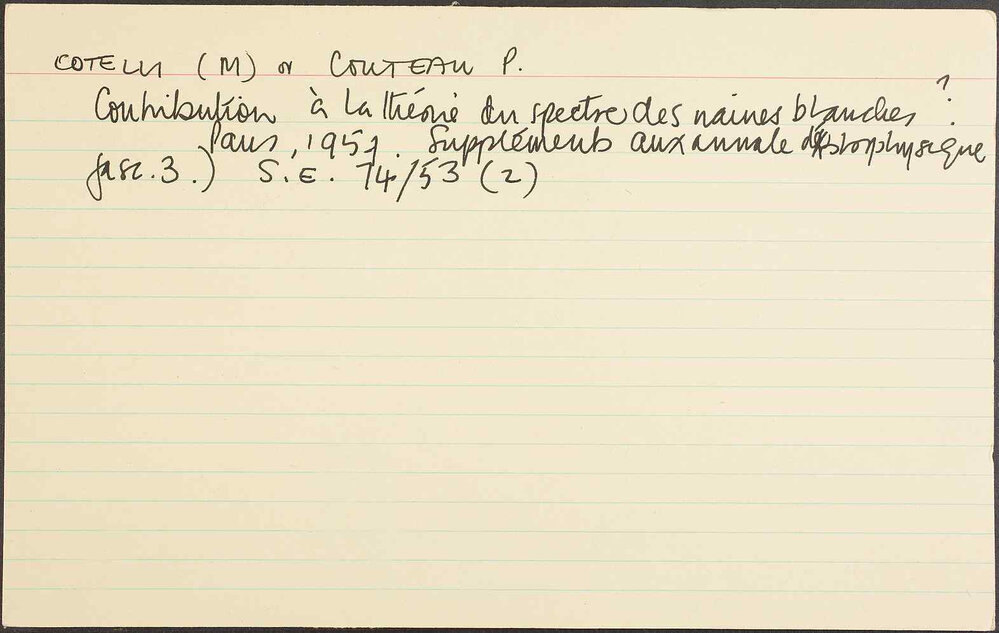 COTELLI (M) or COUTEAU P.
Contribution à la théorie du spectre des naines blanches ?
Paris, 1957. Suppléments aux annale d'Astrophysique
fasc. 3.) S.E. 74/53 (2)